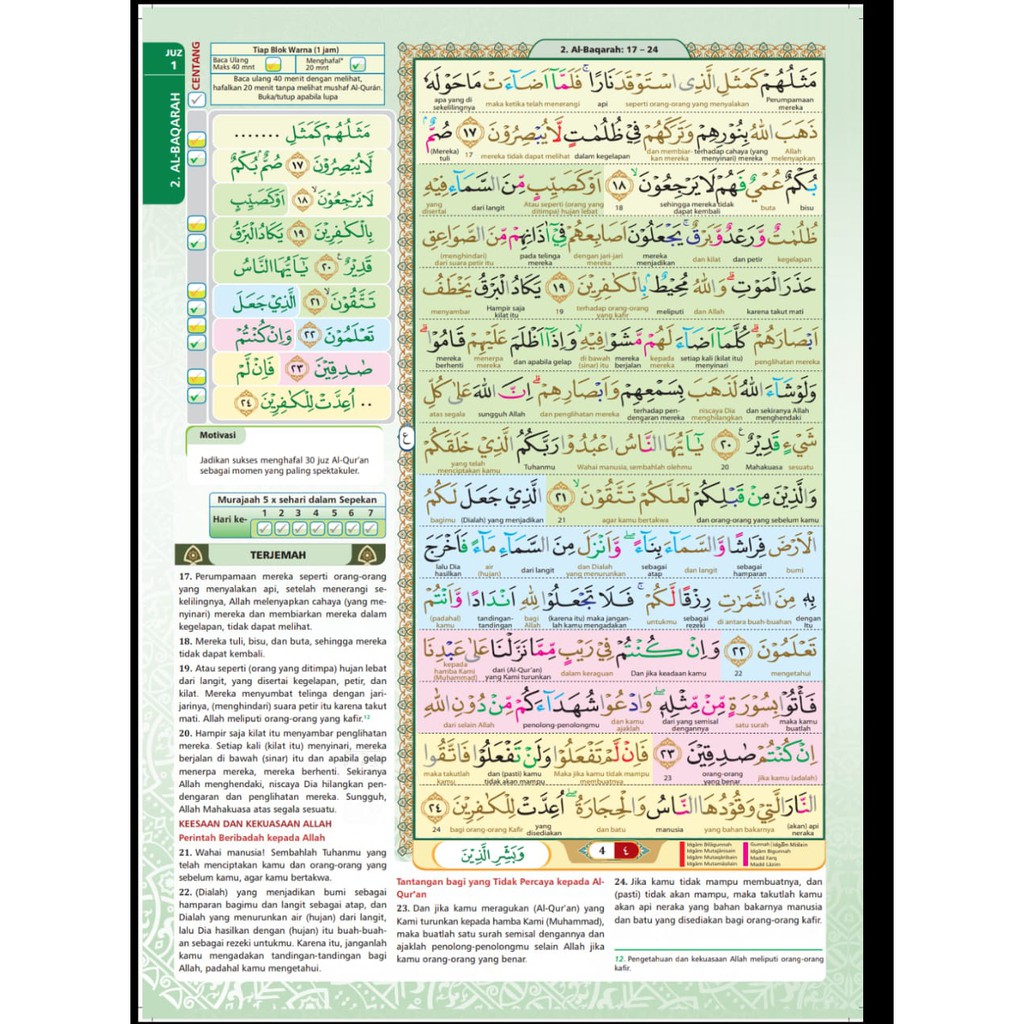 JUZ
1
2. AL-BAQARAH
CENTANG
Tiap Blok Warna (1 jam)
Baca Ulang
Maks 40 mnt
Menghafal*
20 mnt
Baca ulang 40 menit dengan melihat,
hafalkan 20 menit tanpa melihat mushaf Al-Qurán.
Buka/tutup apabila lupa
مَثَلُهُمْ كَمَثَلِ .......
لَا يُبْصِرُوْنَ ١٧ صُمٌّ بُكْمٌ
لَا يَرْجِعُوْنَ ۙ ١٨ اَوْ كَصَيِّبٍ
بِالْكٰفِرِيْنَ ١٩ يَكَادُ الْبَرْقُ
قَدِيْرٌ ࣖ ٢٠ يٰٓاَيُّهَا النَّاسُ
تَتَّقُوْنَ ۙ ٢١ الَّذِيْ جَعَلَ
تَعْلَمُوْنَ ٢٢ وَاِنْ كُنْتُمْ
صٰدِقِيْنَ ٢٣ فَاِنْ لَّمْ
.. اُعِدَّتْ لِلْكٰفِرِيْنَ ٢٤
Motivasi
Jadikan sukses menghafal 30 juz Al-Qur'an
sebagai momen yang paling spektakuler.
Murajaah 5 x sehari dalam Sepekan
Hari ke-
1 2 3 4 5 6 7
TERJEMAH
17. Perumpamaan mereka seperti orang-orang
yang menyalakan api, setelah menerangi se-
kelilingnya, Allah melenyapkan cahaya (yang me-
nyinari) mereka dan membiarkan mereka dalam
kegelapan, tidak dapat melihat.
18. Mereka tuli, bisu, dan buta, sehingga mereka
tidak dapat kembali.
19. Atau seperti (orang yang ditimpa) hujan lebat
dari langit, yang disertai kegelapan, petir, dan
kilat. Mereka menyumbat telinga dengan jari-
jarinya, (menghindari) suara petir itu karena takut
mati. Allah meliputi orang-orang yang kafir.12
20. Hampir saja kilat itu menyambar penglihatan
mereka. Setiap kali (kilat itu) menyinari, mereka
berjalan di bawah (sinar) itu dan apabila gelap
menerpa mereka, mereka berhenti. Sekiranya
Allah menghendaki, niscaya Dia hilangkan pen-
dengaran dan penglihatan mereka. Sungguh,
Allah Mahakuasa atas segala sesuatu.
KEESAAN DAN KEKUASAAN ALLAH
Perintah Beribadah kepada Allah
21. Wahai manusia! Sembahlah Tuhanmu yang
telah menciptakan kamu dan orang-orang yang
sebelum kamu, agar kamu bertakwa.
22. (Dialah) yang menjadikan bumi sebagai
hamparan bagimu dan langit sebagai atap, dan
Dialah yang menurunkan air (hujan) dari langit,
lalu Dia hasilkan dengan (hujan) itu buah-buah-
an sebagai rezeki untukmu. Karena itu, janganlah
kamu mengadakan tandingan-tandingan bagi
Allah, padahal kamu mengetahui.
2. Al-Baqarah: 17 – 24
مَثَلُهُمْ كَمَثَلِ الَّذِى اسْتَوْقَدَ نَارًا ۚ فَلَمَّآ اَضَاۤءَتْ مَا حَوْلَهٗ
Perumpamaan mereka seperti orang-orang yang menyalakan api maka ketika telah menerangi apa yang di sekelilingnya
ذَهَبَ اللّٰهُ بِنُوْرِهِمْ وَتَرَكَهُمْ فِيْ ظُلُمٰتٍ لَّا يُبْصِرُوْنَ ١٧ صُمٌّ ۢ
Allah melenyapkan terhadap cahaya (yang menyinari) mereka dan membiar-kan mereka dalam kegelapan mereka tidak dapat melihat 17 (Mereka) tuli
بُكْمٌ عُمْيٌ فَهُمْ لَا يَرْجِعُوْنَ ۙ ١٨ اَوْ كَصَيِّبٍ مِّنَ السَّمَاۤءِ فِيْهِ
bisu buta sehingga mereka tidak dapat kembali 18 Atau seperti (orang yang ditimpa) hujan lebat dari langit yang disertai
ظُلُمٰتٌ وَّرَعْدٌ وَّبَرْقٌ ۚ يَجْعَلُوْنَ اَصَابِعَهُمْ فِيْٓ اٰذَانِهِمْ مِّنَ الصَّوَاعِقِ
kegelapan dan petir dan kilat mereka menjadikan dengan jari-jari mereka pada telinga mereka (menghindari) dari suara petir itu
حَذَرَ الْمَوْتِ ۗ وَاللّٰهُ مُحِيْطٌ ۢ بِالْكٰفِرِيْنَ ١٩ يَكَادُ الْبَرْقُ يَخْطَفُ
karena takut mati dan Allah meliputi terhadap orang-orang yang kafir 19 Hampir saja kilat itu menyambar
اَبْصَارَهُمْ ۗ كُلَّمَآ اَضَاۤءَ لَهُمْ مَّشَوْا فِيْهِ ۙ وَاِذَآ اَظْلَمَ عَلَيْهِمْ قَامُوْا ۗ
penglihatan mereka setiap kali (kilat itu) menyinari kepada mereka mereka berjalan di bawah (sinar) itu dan apabila gelap menerpa mereka mereka berhenti
وَلَوْ شَاۤءَ اللّٰهُ لَذَهَبَ بِسَمْعِهِمْ وَاَبْصَارِهِمْ ۗ اِنَّ اللّٰهَ عَلٰى كُلِّ
dan sekiranya Allah menghendaki niscaya Dia menghilangkan terhadap pen-dengaran mereka dan penglihatan mereka sungguh Allah atas segala
شَيْءٍ قَدِيْرٌ ࣖ ٢٠ يٰٓاَيُّهَا النَّاسُ اعْبُدُوْا رَبَّكُمُ الَّذِيْ خَلَقَكُمْ
sesuatu Mahakuasa 20 Wahai manusia, sembahlah olehmu Tuhanmu yang telah menciptakan kamu
وَالَّذِيْنَ مِنْ قَبْلِكُمْ لَعَلَّكُمْ تَتَّقُوْنَ ۙ ٢١ الَّذِيْ جَعَلَ لَكُمُ
dan orang-orang yang sebelum kamu agar kamu bertakwa 21 (Dialah) yang menjadikan bagimu
الْاَرْضَ فِرَاشًا وَّالسَّمَاۤءَ بِنَاۤءً ۖ وَّاَنْزَلَ مِنَ السَّمَاۤءِ مَاۤءً فَاَخْرَجَ
bumi sebagai hamparan dan langit sebagai atap dan Dialah yang menurunkan dari langit air (hujan) lalu Dia hasilkan
بِهٖ مِنَ الثَّمَرٰتِ رِزْقًا لَّكُمْ ۚ فَلَا تَجْعَلُوْا لِلّٰهِ اَنْدَادًا وَّاَنْتُمْ
dengan itu di antara buah-buahan sebagai rezeki untukmu (karena itu) maka jangan-lah kamu mengadakan bagi Allah tandingan-tandingan (padahal) kamu
تَعْلَمُوْنَ ٢٢ وَاِنْ كُنْتُمْ فِيْ رَيْبٍ مِّمَّا نَزَّلْنَا عَلٰى عَبْدِنَا
mengetahui 22 Dan jika keadaan kamu dalam keraguan dari (Al-Qur'an) yang Kami turunkan kepada hamba Kami (Muhammad)
فَأْتُوْا بِسُوْرَةٍ مِّنْ مِّثْلِهٖ ۖ وَادْعُوْا شُهَدَاۤءَكُمْ مِّنْ دُوْنِ اللّٰهِ
maka kamu buatlah satu surah dari yang semisal dengannya dan kamu ajaklah penolong-penolongmu dari selain Allah
اِنْ كُنْتُمْ صٰدِقِيْنَ ٢٣ فَاِنْ لَّمْ تَفْعَلُوْا وَلَنْ تَفْعَلُوْا فَاتَّقُوا
jika kamu (adalah) orang-orang yang benar 23 Maka jika kamu tidak mampu dan (pasti) kamu tidak akan mampu maka takutlah kamu
النَّارَ الَّتِيْ وَقُوْدُهَا النَّاسُ وَالْحِجَارَةُ ۖ اُعِدَّتْ لِلْكٰفِرِيْنَ ٢٤
(akan) api neraka yang bahan bakarnya manusia dan batu yang disediakan bagi orang-orang Kafir 24
ع
وَبَشِّرِ الَّذِيْنَ
4 ٤
Idgām Bilāgunnah
Idgām Mutajānisain
Idgām Mutaqāribain
Idgām Mutamāṡilain
Gunnah / Idgām Mīmain
Idgām Bigunnah
Madd Farq
Madd Lāzim
Tantangan bagi yang Tidak Percaya kepada Al-
Qur'an
23. Dan jika kamu meragukan (Al-Qur'an) yang
Kami turunkan kepada hamba Kami (Muhammad),
maka buatlah satu surah semisal dengannya dan
ajaklah penolong-penolongmu selain Allah jika
kamu orang-orang yang benar.
24. Jika kamu tidak mampu membuatnya, dan
(pasti) tidak akan mampu, maka takutlah kamu
akan api neraka yang bahan bakarnya manusia
dan batu yang disediakan bagi orang-orang kafir.
12. Pengetahuan dan kekuasaan Allah meliputi orang-orang
kafir.